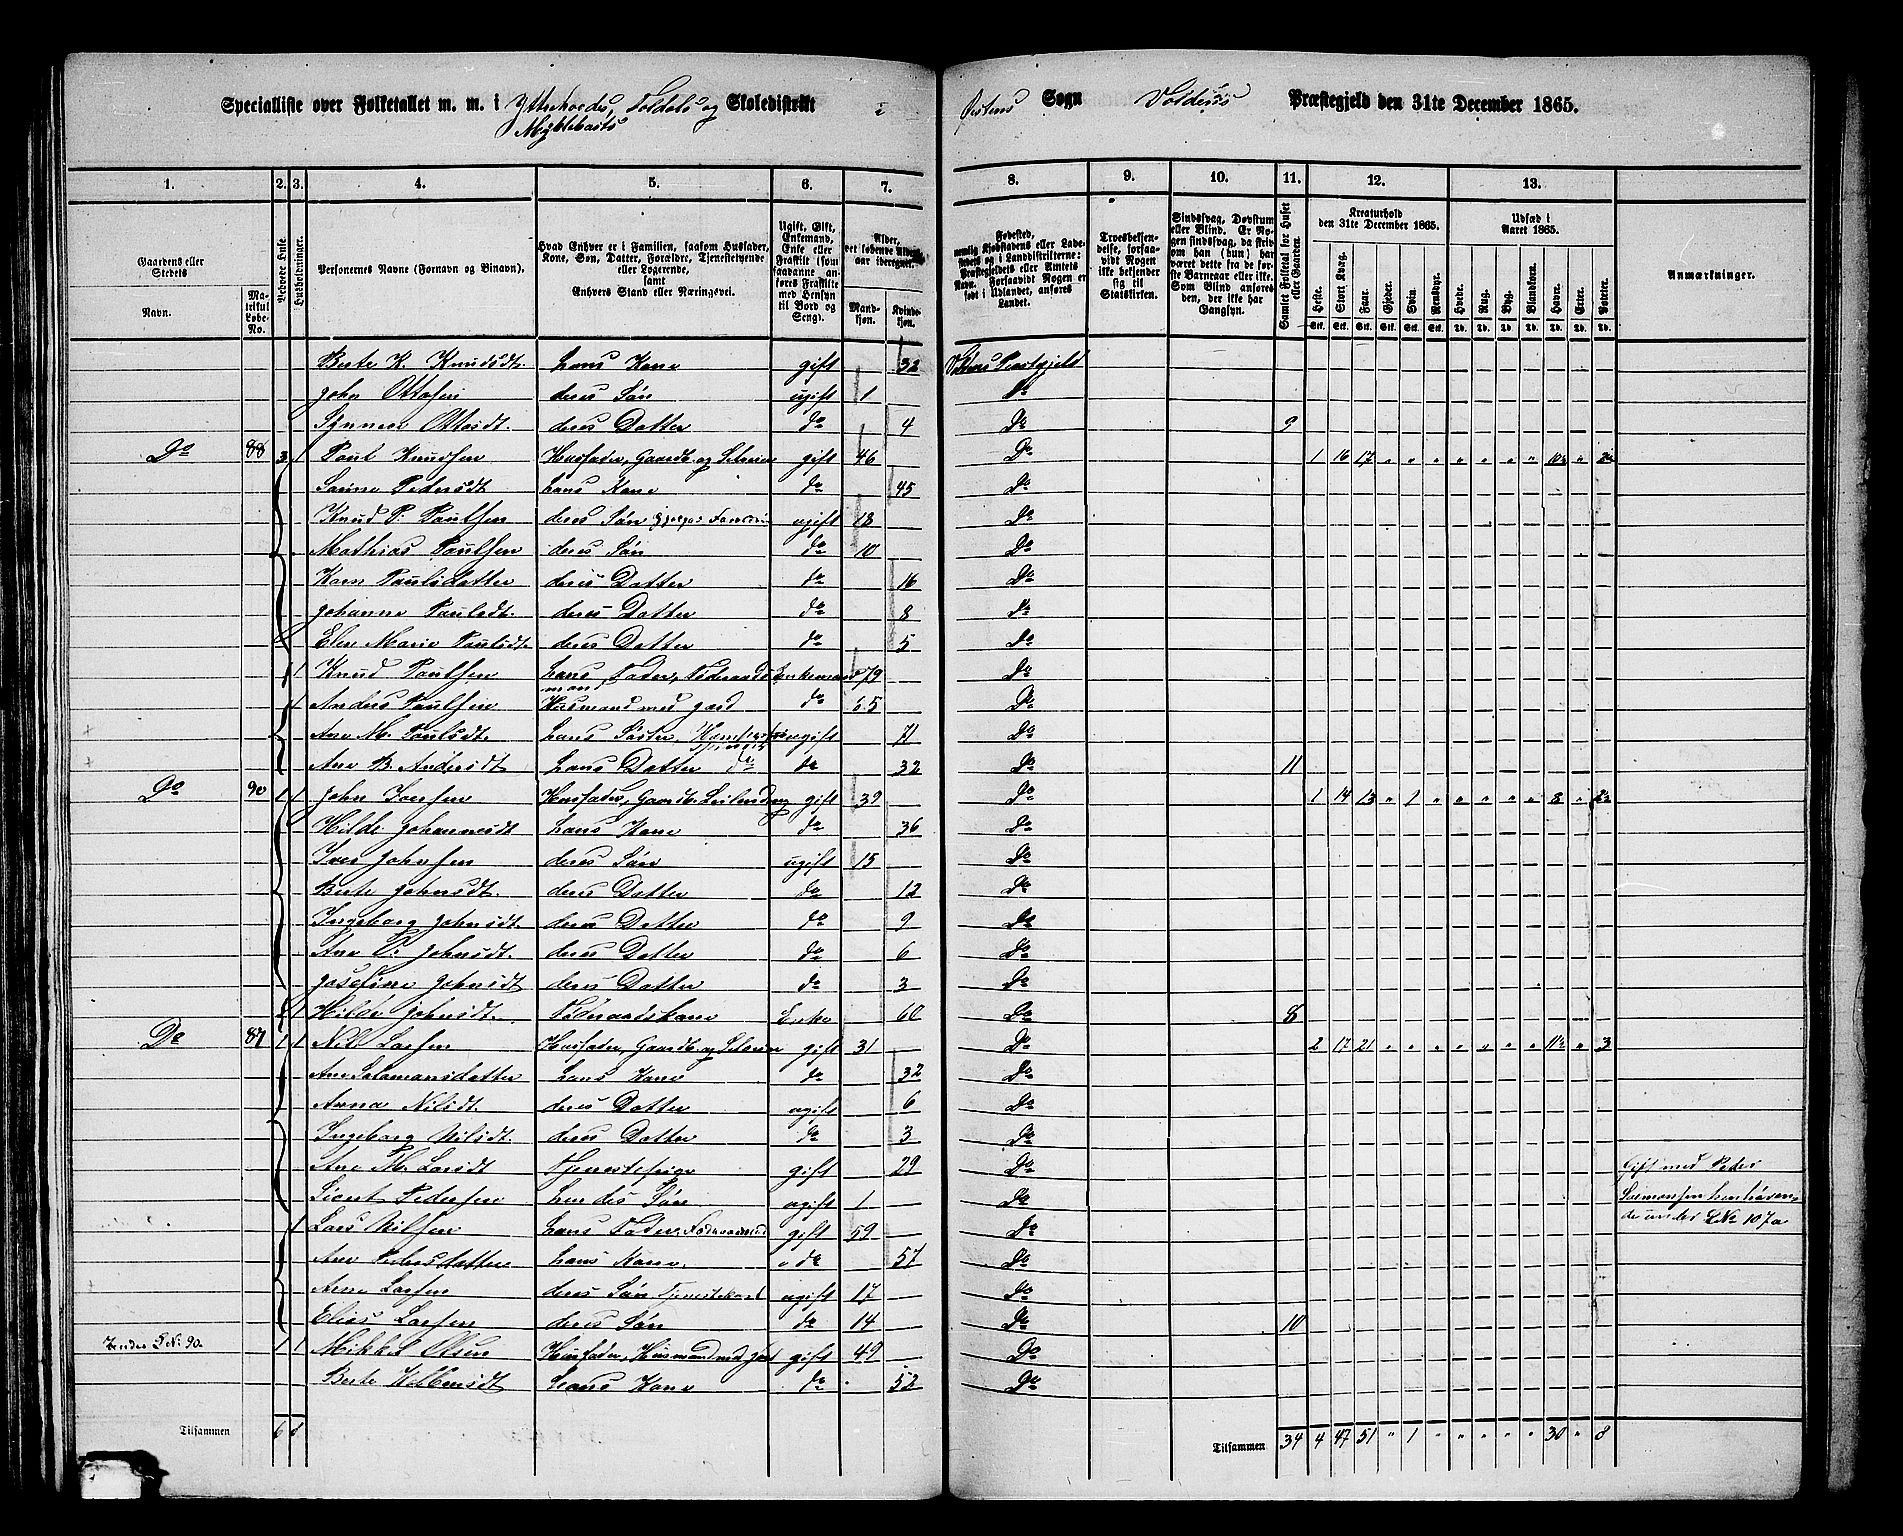 Specialliste over Folketallet m. m. i Skoledistrikt
Sogn Præstegjeld den 31te December 1865.
1. 2. 3. 4. 5. 6. 7. 8. 9. 10. 11. 12. 13.
Gaardens eller Stedets
Navn.
Matrikul Løbe-No.
Beboede Huse.
Husholdninger.
Personernes Navne (Fornavn og Binavn).
Hvad Enhver er i Familien, saasom Husfader, Kone, Søn, Datter, Forældre, Tjenestetyende eller Logerende, samt Enhvers Stand eller Næringsvei.
Ugift, Gift, Enkemand, Enke eller Fraskilt (som saadanne anføres Fraskilte med Hensyn til Bord og Seng).
Alder, det løbende Alders-aar iberegnet.
Mand-kjøn. Kvinde-kjøn.
Fødested,
Troesbekjendelse, forsaavidt Nogen ikke bekjender sig til Statskirken.
Sindssvag, Døvstum eller Blind. Er Nogen sindssvag, da skriv om han (hun) har været dette fra de første Barneaar eller ikke. Som Blind anføres den, der ikke har Gangsyn.
Samlet Folketal for Huset eller Gaarden.
Kreaturhold den 31te December 1865.
Heste. Stort Kvæg. Faar. Gjeder. Svin. Rensdyr.
Udsæd i Aaret 1865.
Hvede. Rug. Byg. Blandkorn. Havre. Erter. Poteter.
Anmærkninger.
Berte K. Knudsdt. hans Kone gift 32
John Ottesen deres Søn ugift 1 Do
Synneve Ottesdt. deres Datter do 4 Do 9
Do 88 3 1 Paul Knudsen Husfader, Gaardb. og Selveier gift 46 Do 1 16 17
Pedersdt hans Kone do 45 Do
Knud P. Paulsen deres Søn ugift 18 Do
Mathias Paulsen deres Søn do 10 Do
Karn Paulsdatter deres Datter do 16 Do
Johanne Paulsdt. deres Datter do 8 Do
Elen Marie Paulsdt. deres Datter do 5 Do
1 Knud Paulsen hans Fader, Føderaads-mand Enkemand 79 Do
1 Anders Paulsen Husmand med Jord do 65 Do
Ane M. Paulsdt. hans Søster ugift 71 Do
Ane B. Andersdt hans Datter do do 32 Do 11
Do 90 1 1 John Iversen Husfader, Gaardb. Leilending gift 39 Do 1 14 13 " 1 8
Hilde Johannesdt hans Kone do 36 Do
Iver Johnsen deres Søn ugift 15 Do
Berte Johnsdt. deres Datter do 12 Do
Ingeborg Johnsdt. deres Datter do 9 Do
Ane P. Johnsdt. deres Datter do 6 Do
Josefine Johnsdt deres Datter do 3 Do
1 Hilde Johnsdt. Føderaadskone Enke 60 Do 8
Do 87 1 1 Nils Larsen Husfader, Gaardb. og Selveier gift 31 Do 2 17 21 3
Ane Salamonsdatter hans Kone do 32 Do
Anna Nilsdt. deres Datter ugift 6 Do
Ingeborg Nilsdt. deres Datter do 3 Do
Ane M. Larsdt Tjenestepige gift 29 Do Gift med Peder
Sivert Pedersen hendes Søn ugift 1 Do
1 Lars Nilsen hans Fader, Føderaadsmand gift 59 Do de under LNo 107a
Ane Pedersdatter hans Kone. do 57 Do
Arne Larsen deres Søn Tjenestekarl ugift 17 Do
Elias Larsen deres Søn do 14 Do 10
Under LNo 90. 1 1 Mikkel Olsen Husfader, Husmand med Jord gift 49 Do
Berte hans Kone do 52 Do
Tilsammen 6 8
Tilsammen 34 4 47 51 " 1 " " " " " 30 " 8